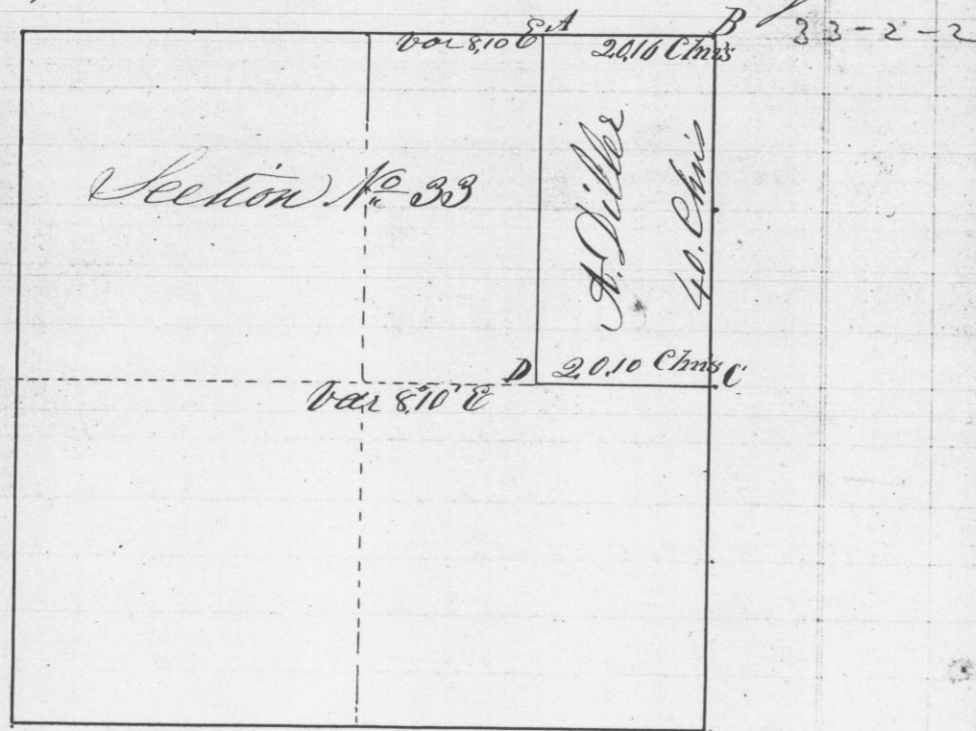 A B
Var 8,10 E 20,16 Chns 33-2-2
Section No 33
A. Diller
40. Chns
D 20,10 Chns C
Var 8°,10' E